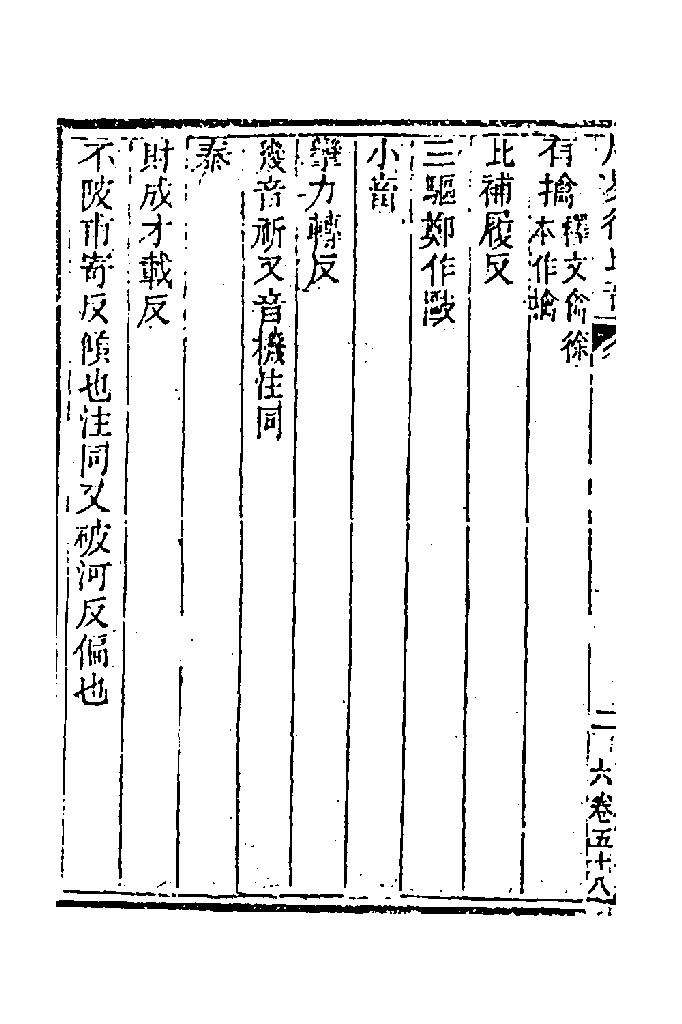 周易徐氏音
二
六
卷五十八
有擒釋文禽徐
本作擒
比補履反
三驅鄭作敺
小畜
攣力轉反
幾音祈又音機注同
泰
財成才載反
不陂甫寄反傾也注同又破河反偏也